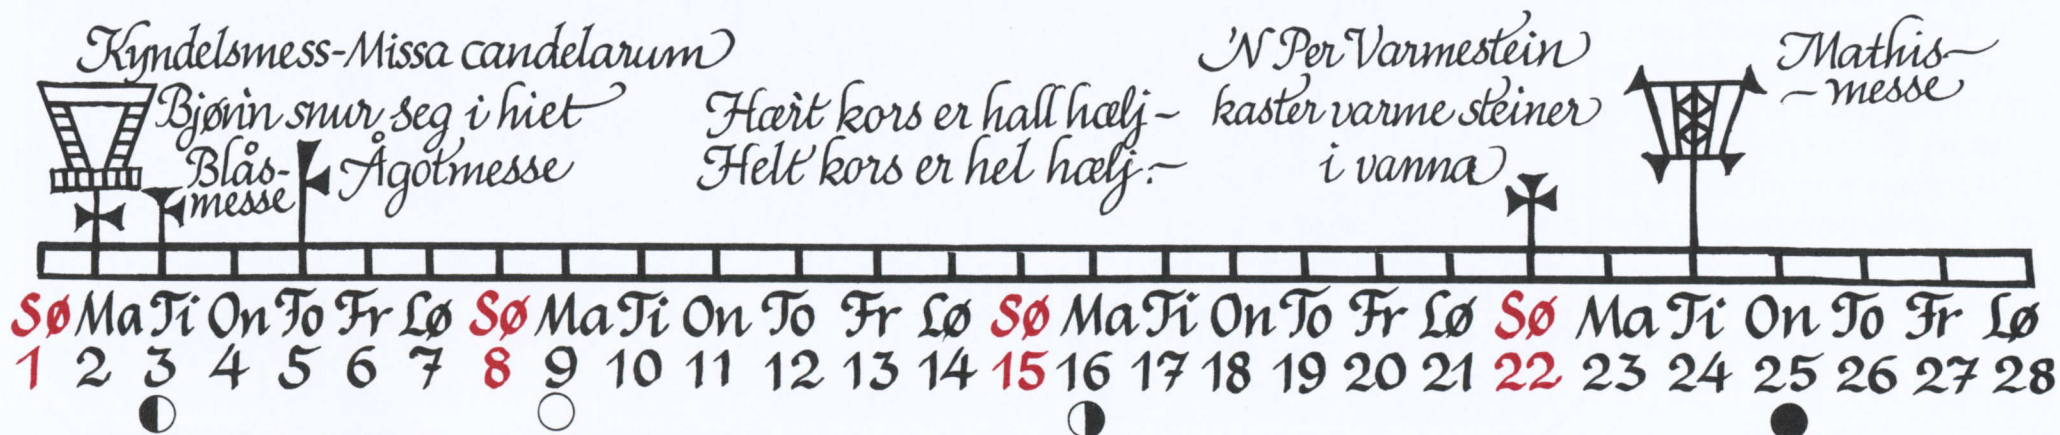 Kyndelsmess-Missa candelarum
Bjørin snur seg i hiet
Blås-
messe
Ågotmesse
Hært kors er hall hælj-
Helt kors er hel hælj.-
'N Per Varmestein
kaster varme steiner
i vanna
Mathis-
-messe
Sø Ma Ti On To Fr Lø Sø Ma Ti On To Fr Lø Sø Ma Ti On To Fr Lø Sø Ma Ti On To Fr Lø
1 2 3 4 5 6 7 8 9 10 11 12 13 14 15 16 17 18 19 20 21 22 23 24 25 26 27 28